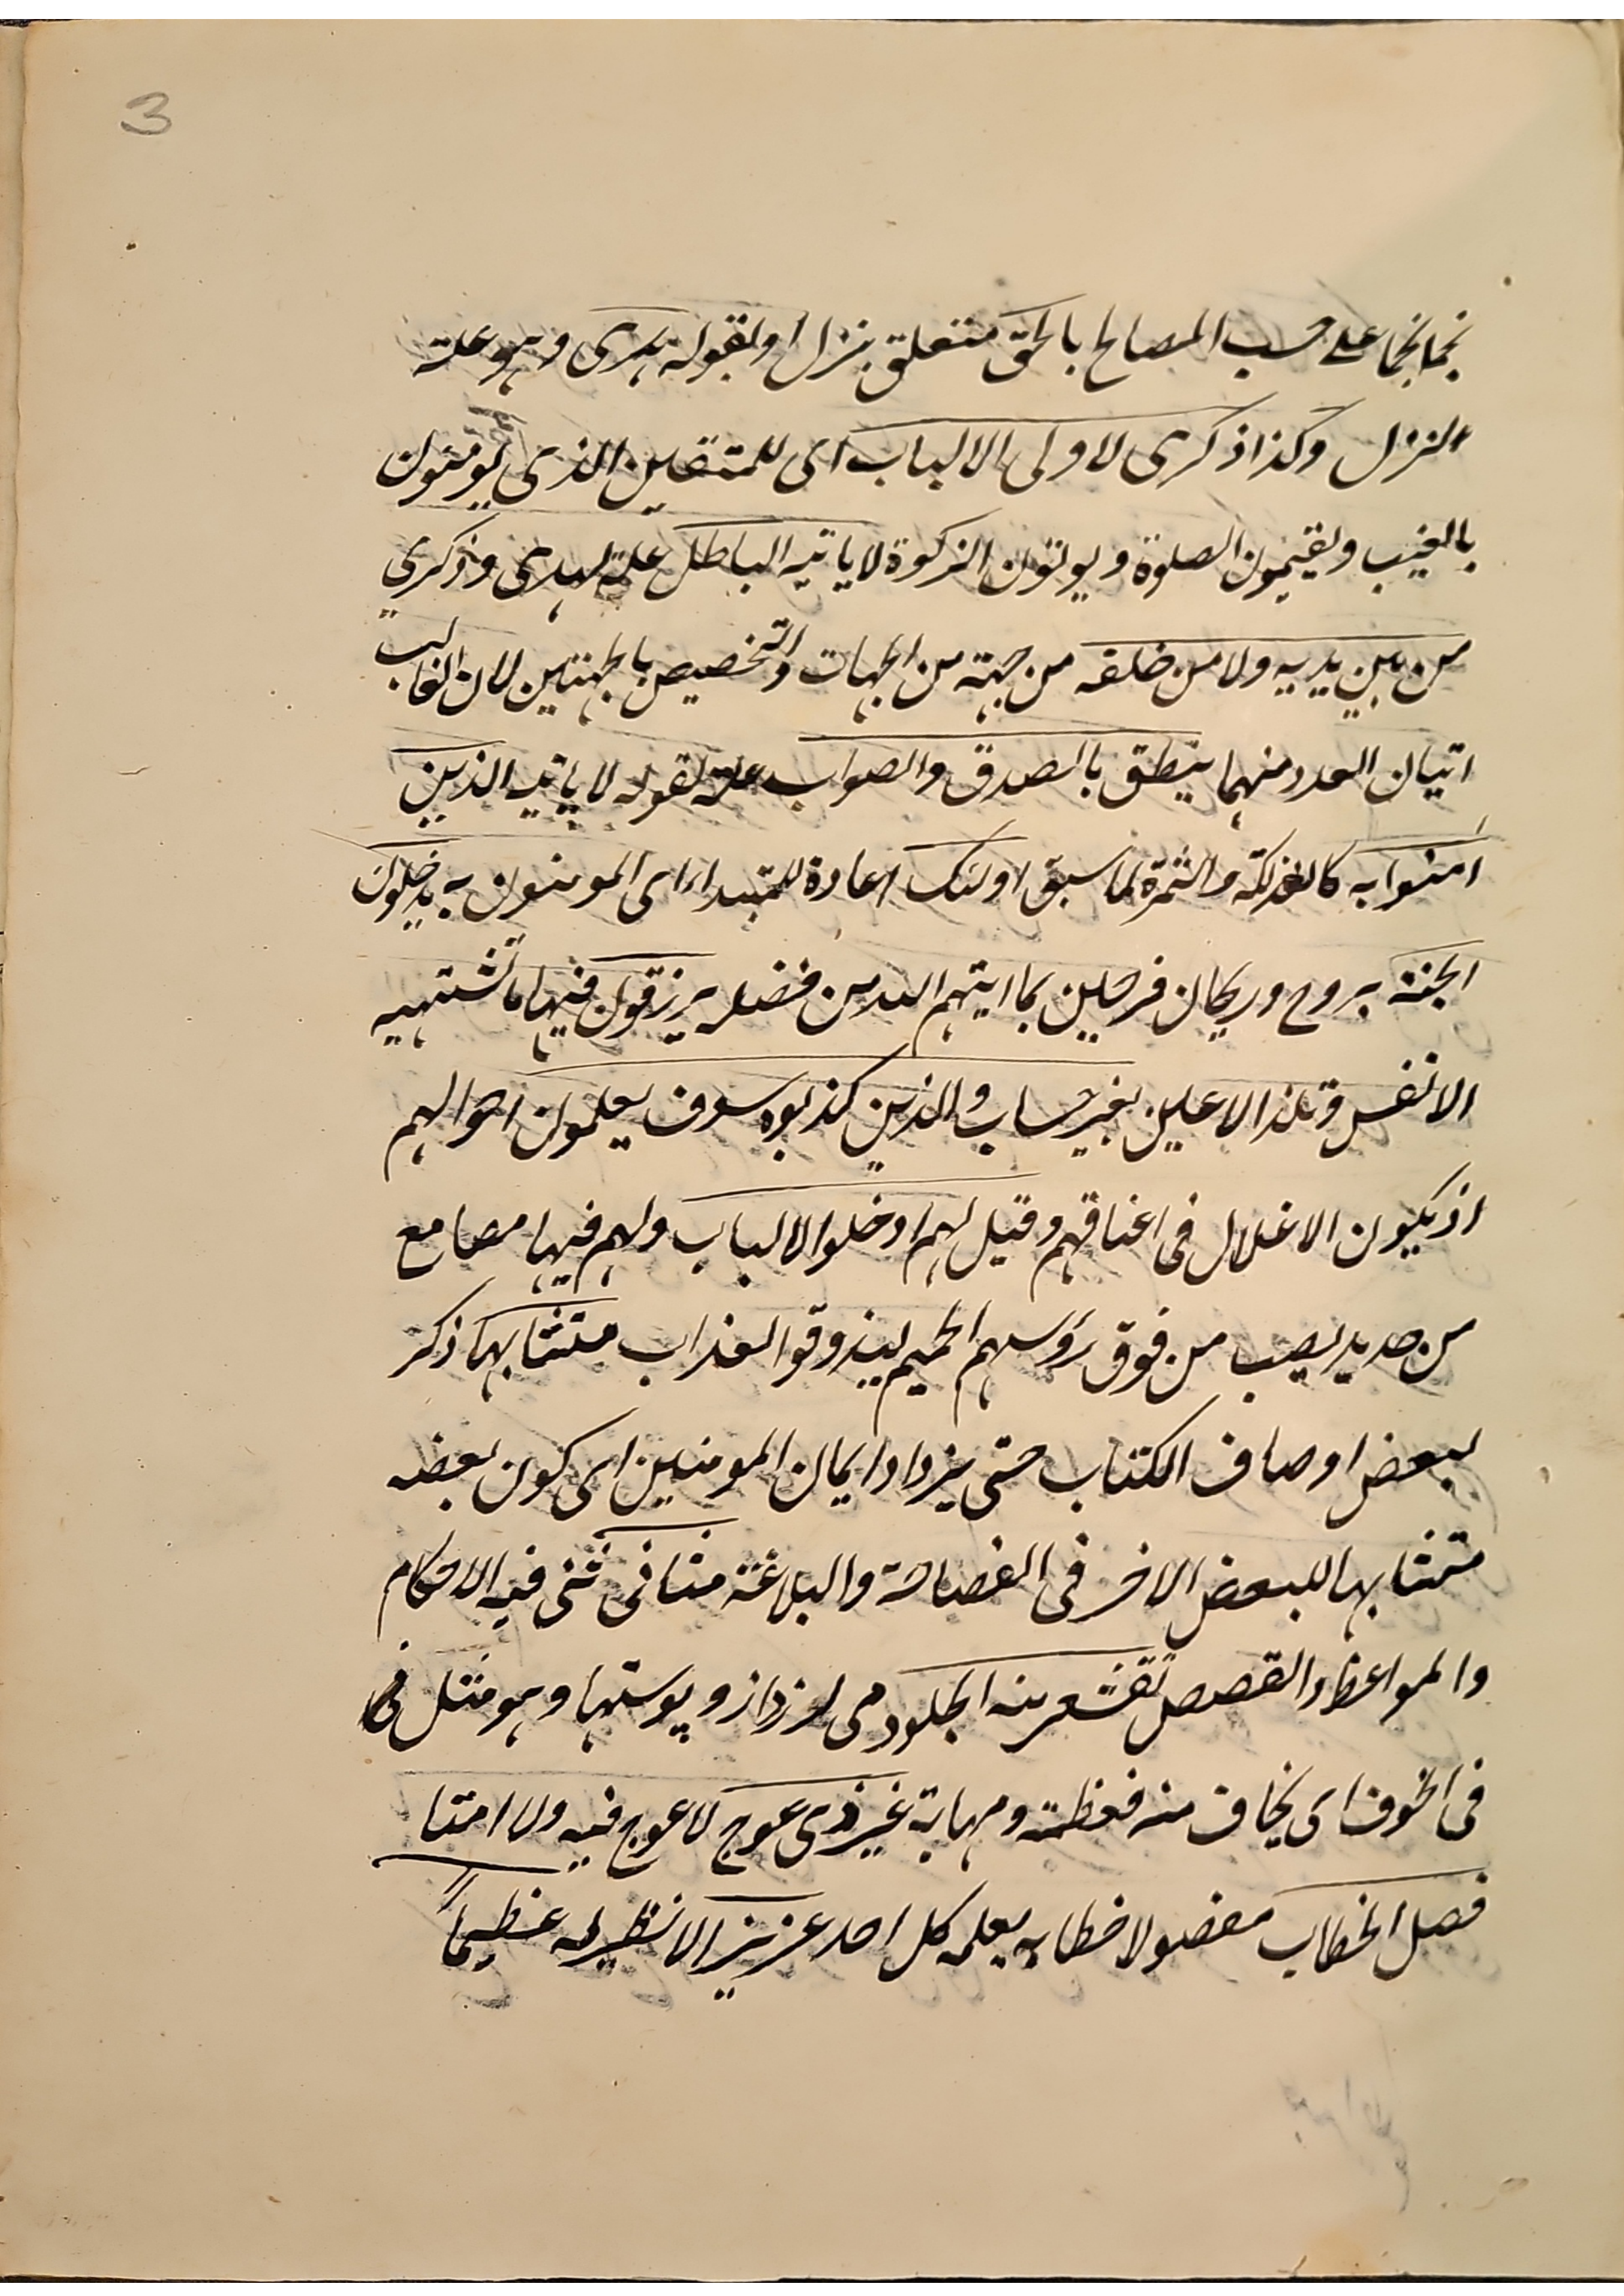 3
نجما نجما على حسب المصالح بالحق متعلق بنزل او بقوله هدى وهو علة
النزل وكذا ذكرى لاولى الالباب اى للمتقين الذى يومنون
بالغيب ويقيمون الصلوة ويوتون الزكوة لا ياتيه الباطل علة لهدى وذكرى
من بين يديه ولا من خلفه من جهة من الجهات والتخصيص بالجهتين لان الغالب
اتيان العدد منهما ينطق بالصدق والصواب علة لقوله لا ياتيه الذين
امنوا به كالفذلكة والثمرة لما سبق اولئك اعادة للمبتداء اى المومنون به يدخلون
الجنة بروح وريحان فرحين بما ايتهم الله من فضله يرزقون فيها ما تشتهيه
الانفس وتلذ الاعين بغير حساب والذين كذبوه سوف يعلمون احوالهم
اذ يكون الاغلال فى اعناقهم وقيل لهم ادخلوا الالباب ولهم فيها مصامع
من حديد يصب من فوق رؤسهم الحميم ليذوقوا العذاب متشابها ذكر
لبعض اوصاف الكتاب حتى يزداد ايمان المومنين اى كون بعضه
متشابها للبعض الاخر فى الفصاحة والبلاغة مثانى ثنى فيه الاحكام
والمواعظ والقصص تقشعر منه الجلود مى لرزد ازو پوستها وهو مثل فى
فى الخوف اى يخاف منه فعظمته ومهابته غير ذى عوج لا عوج فيه ولا امتا
فصل الخطاب مفصولا خطابه يعلمه كل احد عزيزا لا نظير له عظيماً